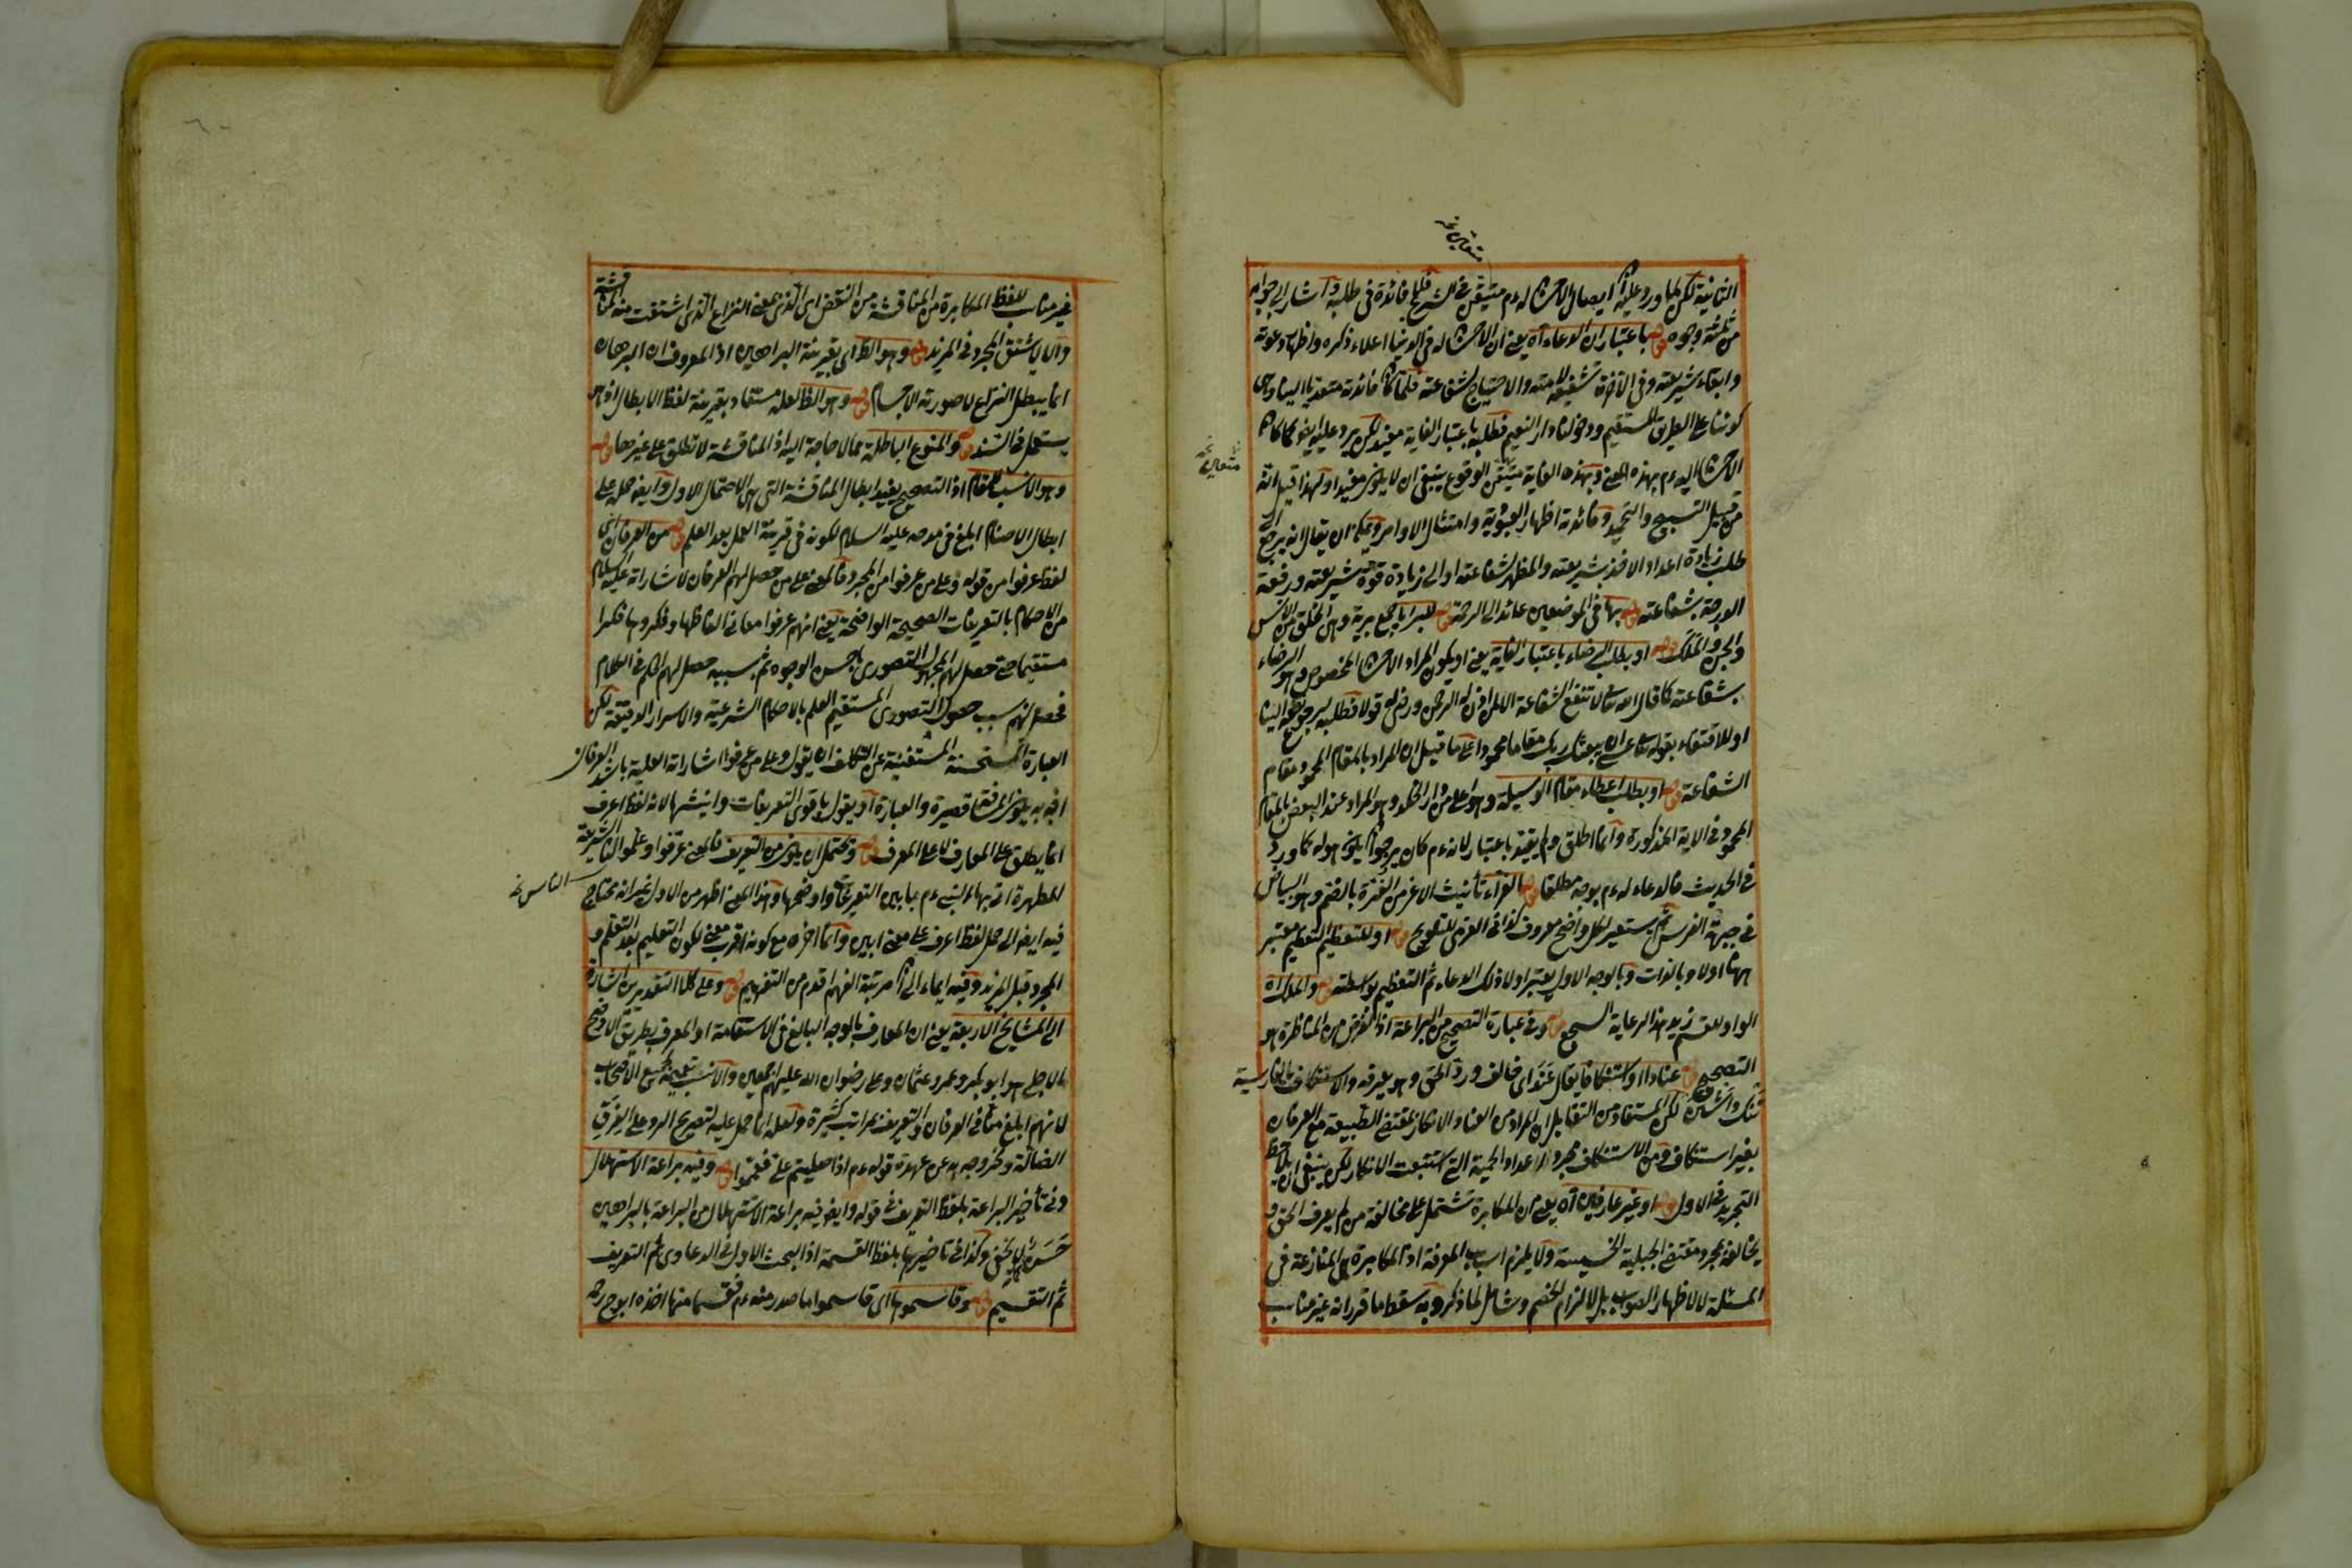 الثانية لكن لما ورد عليه ايصال الاحسان له عم متيقن في الشرع فلا فائدة في طلبه واشار الى جوابه
من ثلثة وجوه قوله باعتبار ان الدعاء آه يعني ان الاحسان له في الدنيا اعلاء ذكره واظهار دعوته
وابقاء شريعته وفي الآخرة تشفيعه لامته والاحتياج لشفاعته فلما كان فائدته متعدية الينا وهي
كوننا على الطريق المستقيم ودخولنا دار النعيم فطلبه باعتبار الغاية مفيد لكن يرد عليه انه كما كان
الاحسان اليه عم بهذه المعنى وبهذه الغاية متيقن الوقوع ينبغي ان لا يكون مفيدا ولهذا قيل انه
من قبيل التسبيح والتحميد وفائدته اظهار العبودية وامتثال الاوامر ويمكن ان يقال انه يرجع الى
طلب زيادة اعداد الاخذ بشريعته والمظهر لشفاعته او الى زيادة قوة شريعته ورفعة
الدرجة بشفاعته قوله بها في الموضعين عائد الى الرحمة قوله للبرايا جمع برية وهي الخلق من الانس
والجن والملك قوله او بطلب الرضاء باعتبار الغاية يعني او يكون المراد الاحسان المخصوص وهو الرضاء
بشفاعته كما قال الله تعالى لا تنفع الشفاعة الا لمن اذن له الرحمن ورضي له قولا فطلبه يرجع نفعه الينا
او للاقتفاء بقوله تعالى عسى ان يبعثك ربك مقاما محمودا على ما قيل ان المراد بالمقام المحمود مقام
الشفاعة قوله او بطلب اعطاء مقام الوسيلة وهو اعلى من دار الخلد وهو المراد عند البعض بالمقام
المحمود في الاية المذكورة وانما اطلق ولم يقيد باعتبار لانه عم كان يرجوا ان يكون هو له كما ورد
في الحديث فالدعاء له عم بوجه مطلقا قوله الغراء تأنيث الاغر من الغرة بالضم وهو البياض
في جبهة الفرس ثم يستعير لكل واضح معروف كذا في العزى للتلويح قوله او للتعظيم التعظيم معتبر
ههنا اولا وبالذات وبالوجه الاول يعتبر اولا ذلك الدعاء ثم التعظيم بواسطته قوله والملك اه
الواو للقسم زيد هذا لرعاية السجع قوله وفي عبارة التصحيح من البراعة اذ الغرض من المناظرة هو
التصحيح قوله عنادا او استنكافا يقال عند اي خالف ورد الحق وهو يعرفه والاستنكاف بالفارسية
ننك داشتن لكن المستفاد من التقابل ان المراد من العناد الانكار بمقتضى الطبيعة مع العرفان
بغير استنكاف ومن الاستنكاف مجرد اعداد الحمية التي استتبعت الانكار لكن ينبغي ان يلاحظ
التجريد في الاول قوله او غير عارفين اه يعني ان المكابرة تشتمل على مخالفة من لم يعرف الحق و
يخالفه بمجرد مقتضى الجبلية الخسيسة ولا يلزم اسباب المعرفة اذ المكابرة هي المنازعة في
المسئلة لا لاظهار الصواب بل لالزام الخصم وشامل لما ذكر وبه سقط ما قرر انه غير مناسب
متعاين نخ
متعاين نخ
غير مناسب للفظ المكابرة من المناقشة من النقض اي الذي بمعنى النزاع الذي اشتقت منه المناقشة
والا لاشتق المجرد في المزيد قوله وهو الظ اي بقرينة البراهين اذ المعروف ان البرهان
انما يبطل النزاع لا صورته الاجسام قوله وهو الظ لعله مستفاد بقرينة لفظ الابطال اذ هو
يستعمل في السند قوله والمنوع الباطلة مما لا حاجة اليه اذ المناقشة لا تطلق على غيرها قوله
وهو الانسب للمقام اذ التصحيح يفيد ابطال المناقشة التي هي الاحتمال الاول وايضا حمله على
ابطال الاصنام ابلغ في مدحه عليه السلام لكونه في قرينة العمل بعد العلم قوله من العرفان اي
لفظ عرفوا من قوله وعلى من عرفوا من المجرد فالمعنى على من حصل لهم العرفان لاشاراته عليه السلام
من الاحكام بالتعريفات الصحيحة الواضحة يعني انهم عرفوا معاني الفاظها وفكروا فيها فكرا
مستقيما حتى حصل لهم المجهول التصوري باحسن الوجوه ثم بسببه حصل لهم الحكم في الكلام
فحصل لهم بسبب حصول التصوري المستقيم العلم بالاحكام الشرعية والاسرار الدقيقة لكن
العبارة المستحسنة المستغنية عن التكلف ان يقول وعلى من عرفوا اشاراته العلية باشد العرفان
اذ به يكون الفقرة قصيرة والعبارة او يقول باقوى التعريفات وانيشها لانه لفظ اعرف
انما يطلق على المعارف لا على المعرف قوله ويحتمل ان يكون من التعريف فالمعنى عرفوا وعلموا الناس الشريعة
المطهرة اتى بهاء النبي عم بابين التعريفات واوضحها وهذا المعنى اظهر من الاول غير انه يحتاج
فيه ايضا الى حمل لفظ اعرف على معنى ابين وانما اخره مع كونه اقرب معنى لكون التعليم بعد التعلم و
المجرد قبل المزيد وفيه ايماء الى ان مرتبة الفهم اقدم من التفهيم قوله وعلى كلا التقديرين اشارة
الى المشايخ الاربعة يعني ان المعارف بالوجه البالغ في الاستقامة او المعرف بطريق الاوضح
الاجلي هو ابو بكر وعمر وعثمان وعلي رضوان الله عليهم اجمعين والانسب تعميمه لجميع الاصحاب
لانهم ابلغ منا في العرفان والتعريف بمراتب كثيرة ولعله انما حمل عليه لتصريح الرد على الفرق
الضالة وخروجه به عن عهدة قوله عم اذا صليتم علي فعمموا قوله وفيه براعة الاستهلال
وفي تأخير البراعة بلفظ التعريف في قوله وايضا فيه براعة الاستهلال من البراعة بالبراهين
حسن لا يخفى وكذا في تاخيرها بلفظ القسمة اذ البحث الاول في الدعاوى ثم التعريف
ثم التقسيم قوله وقاسموها اي قاسموا ما صدر منه عم فقسما منها اخذه ابو ح رحمه
الناس نخ